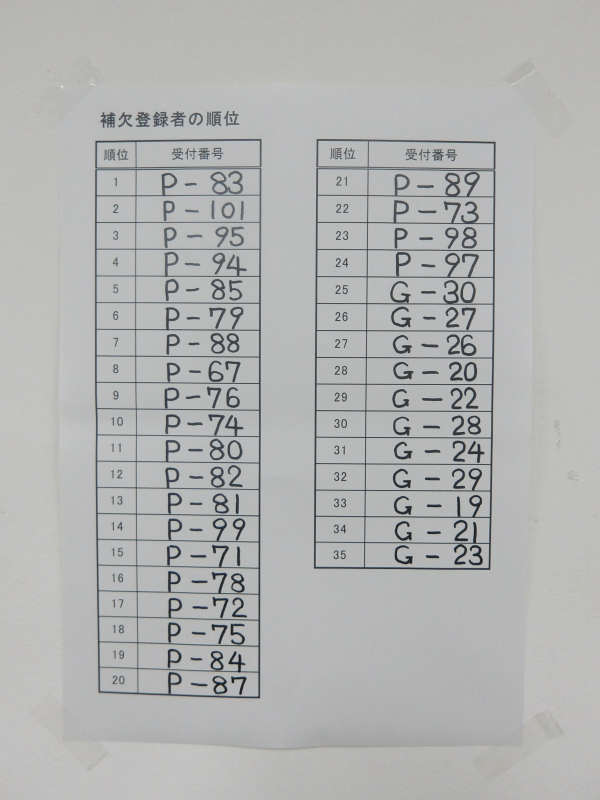 補欠登録者の順位
順位 受付番号
1 P-83
2 P-101
3 P-95
4 P-94
5 P-85
6 P-79
7 P-88
8 P-67
9 P-76
10 P-74
11 P-80
12 P-82
13 P-81
14 P-99
15 P-71
16 P-78
17 P-72
18 P-75
19 P-84
20 P-87
順位 受付番号
21 P-89
22 P-73
23 P-98
24 P-97
25 G-30
26 G-27
27 G-26
28 G-20
29 G-22
30 G-28
31 G-24
32 G-29
33 G-19
34 G-21
35 G-23